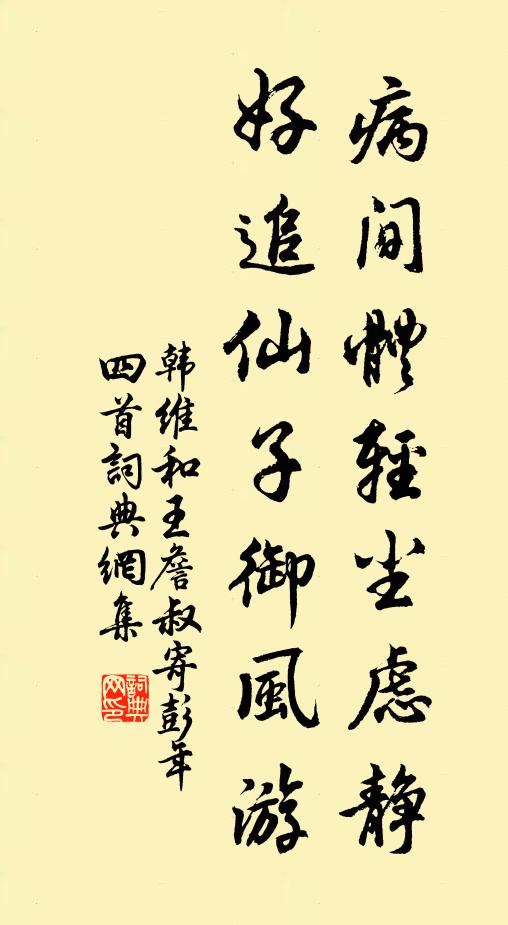 病间體輕尘慮静
好追仙子御風游
韩维和王詹叔寄彭年
四首詞典網集
詞典
网印